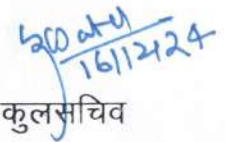 16/12/24
कुलसचिव